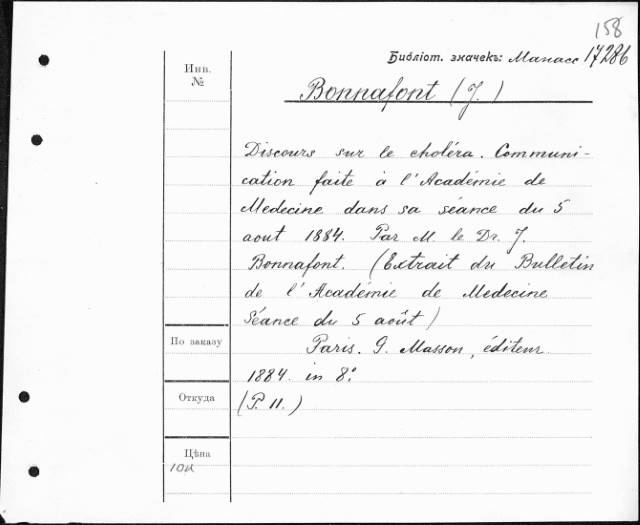 158
Библіот. значекъ: Манасс 17286
Инв.
№
Bonnafont (J.)
Discours sur le choléra. Communi-
cation faite à l'Académie de
Medecine dans sa séance du 5
aout 1884. Par M. le Dr. J.
Bonnafont. (Extrait du Bulletin
de l'Académie de Medecine
Séance du 5 août)
По заказу
Paris. G. Masson, éditeur
1884. in 8º.
Откуда
(P. 11.)
Цѣна